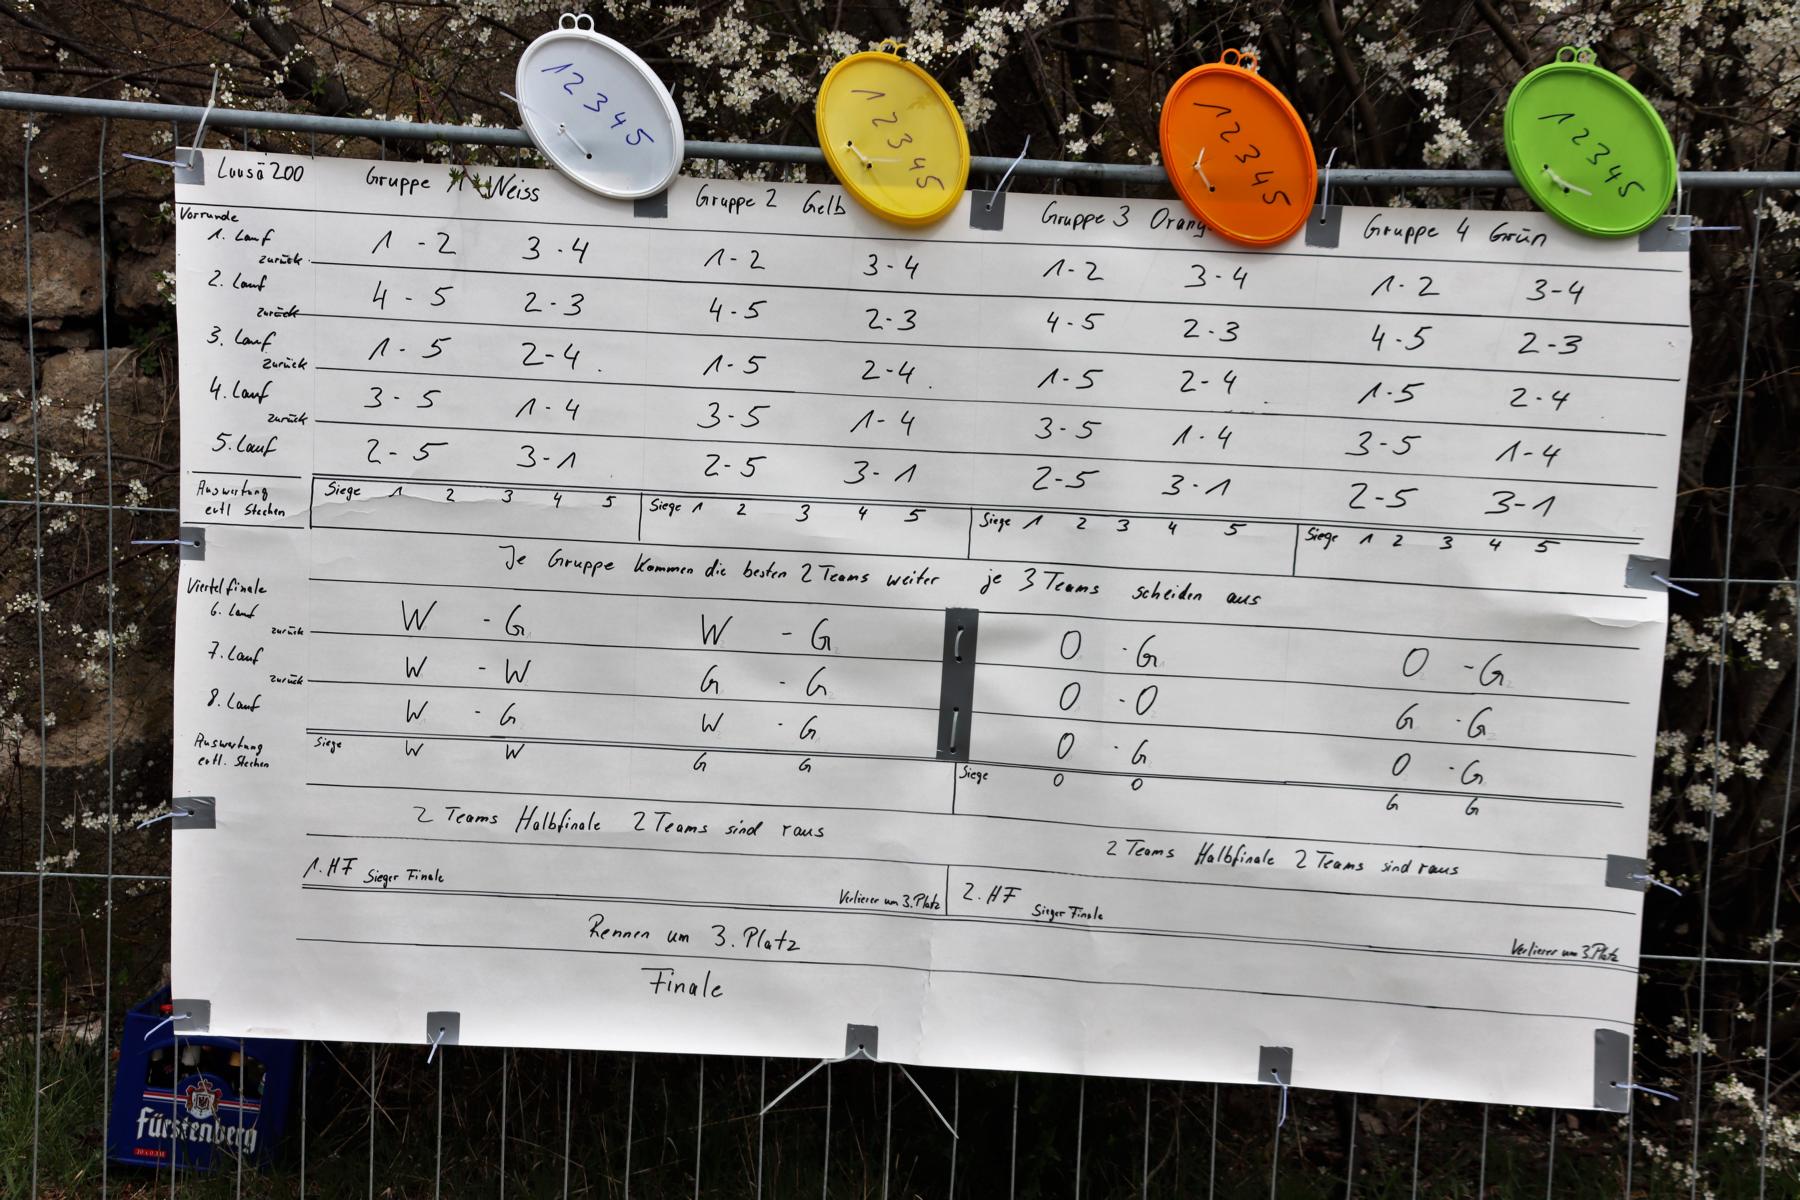 1 2 3 4 5
1 2 3 4 5
1 2 3 4 5
1 2 3 4 5
Luusä 200 Gruppe 1 Weiss Gruppe 2 Gelb Gruppe 3 Gruppe 4 Grün
Vorrunde
1. Lauf 1 - 2 3 - 4 1 - 2 3 - 4 1 - 2 3 - 4 1 - 2 3 - 4
zurück
2. Lauf 4 - 5 2 - 3 4 - 5 2 - 3 4 - 5 2 - 3 4 - 5 2 - 3
zurück
3. Lauf 1 - 5 2 - 4 1 - 5 2 - 4 1 - 5 2 - 4 1 - 5 2 - 4
zurück
4. Lauf 3 - 5 1 - 4 3 - 5 1 - 4 3 - 5 1 - 4 3 - 5 1 - 4
zurück
5. Lauf 2 - 5 3 - 1 2 - 5 3 - 1 2 - 5 3 - 1 2 - 5 3 - 1
Auswertung Siege 1 2 3 4 5 Siege 1 2 3 4 5 Siege 1 2 3 4 5 Siege 1 2 3 4 5
evtl Stechen
Je Gruppe kommen die besten 2 Teams weiter je 3 Teams scheiden aus
Viertelfinale
6. Lauf W - G W - G O - G O - G
zurück
7. Lauf W - W G - G O - O G - G
zurück
8. Lauf W - G W - G O - G O - G
Auswertung Siege W W G G Siege O O G G
evtl. Stechen
2 Teams Halbfinale 2 Teams sind raus 2 Teams Halbfinale 2 Teams sind raus
1. HF Sieger Finale Verlierer um 3. Platz 2. HF Sieger Finale Verlierer um 3. Platz
Rennen um 3. Platz
Finale
Fürstenberg